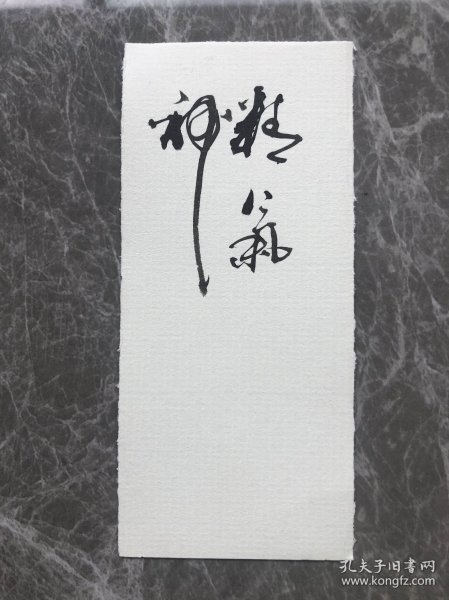 精氣
神
孔夫子旧书网
www.kongfz.com